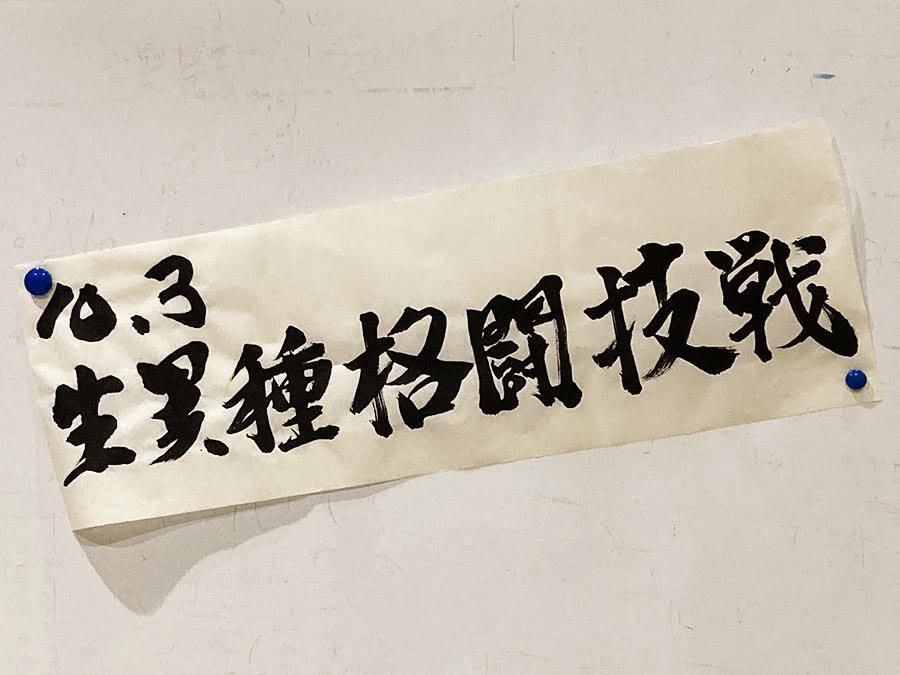 10.3
生異種格闘技戦